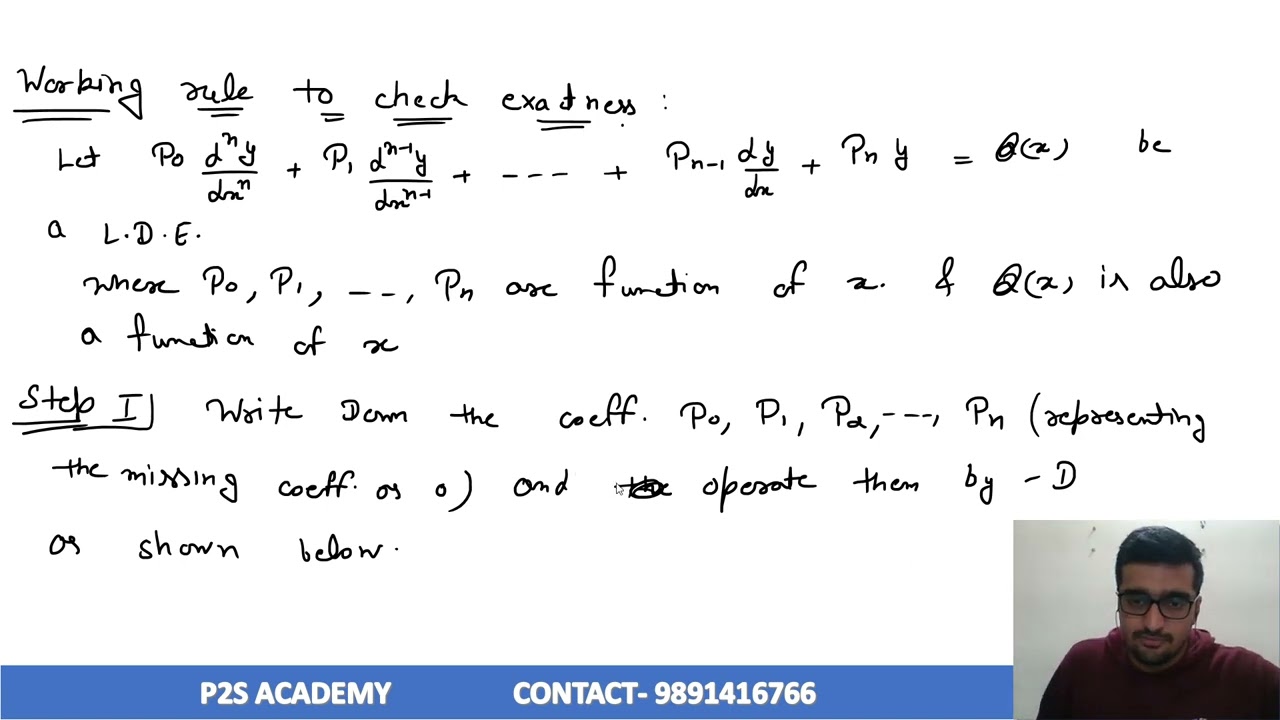 Working rule to check exactness :
Let P₀ dⁿy/dxⁿ + P₁ dⁿ⁻¹y/dxⁿ⁻¹ + --- + Pₙ₋₁ dy/dx + Pₙ y = Q(x) be
a L.D.E.
where P₀, P₁, ---, Pₙ are function of x. & Q(x) is also
a function of x
Step I) Write Down the coeff. P₀, P₁, P₂, ---, Pₙ (representing
the missing coeff. as 0) and operate them by -D
as shown below.
P2S ACADEMY CONTACT- 9891416766